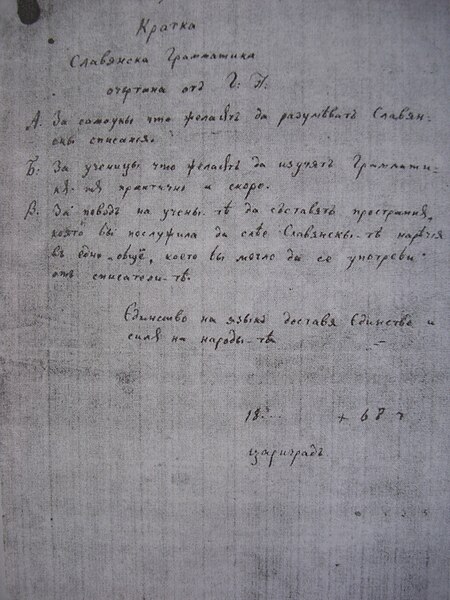 Кратка
Славянска Грамматика
очертана отъ Г: П:
А. За самоуцы что желаѭтъ да разумѣватъ Славѣн-
скы списанія.
Б: За ученицы, что желаѭтъ да изучятъ Грамmати-
кѫ тѫ практично и скоро.
В) За поводъ на учены-тѣ да съставятъ пространнѫ,
която бы послужила да слѣе Славянскы-тѣ нарѣчія
въ едно общо, което бы могло да се употреби
отъ списатели-тѣ.
Единство на языка доставя Единство и
силѫ на народы-тѣ
18 + 68
Цариградъ